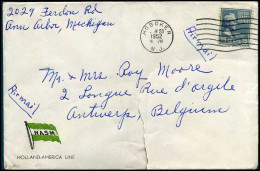 2029 Ferdon Rd
Ann Arbor, Michigan
HOBOKEN
1952
N.J.
Airmail
Mr. & Mrs Roy Moore
2 Longue Rue d'argile
Antwerp, Belgium
Airmail
NASM
HOLLAND-AMERICA LINE